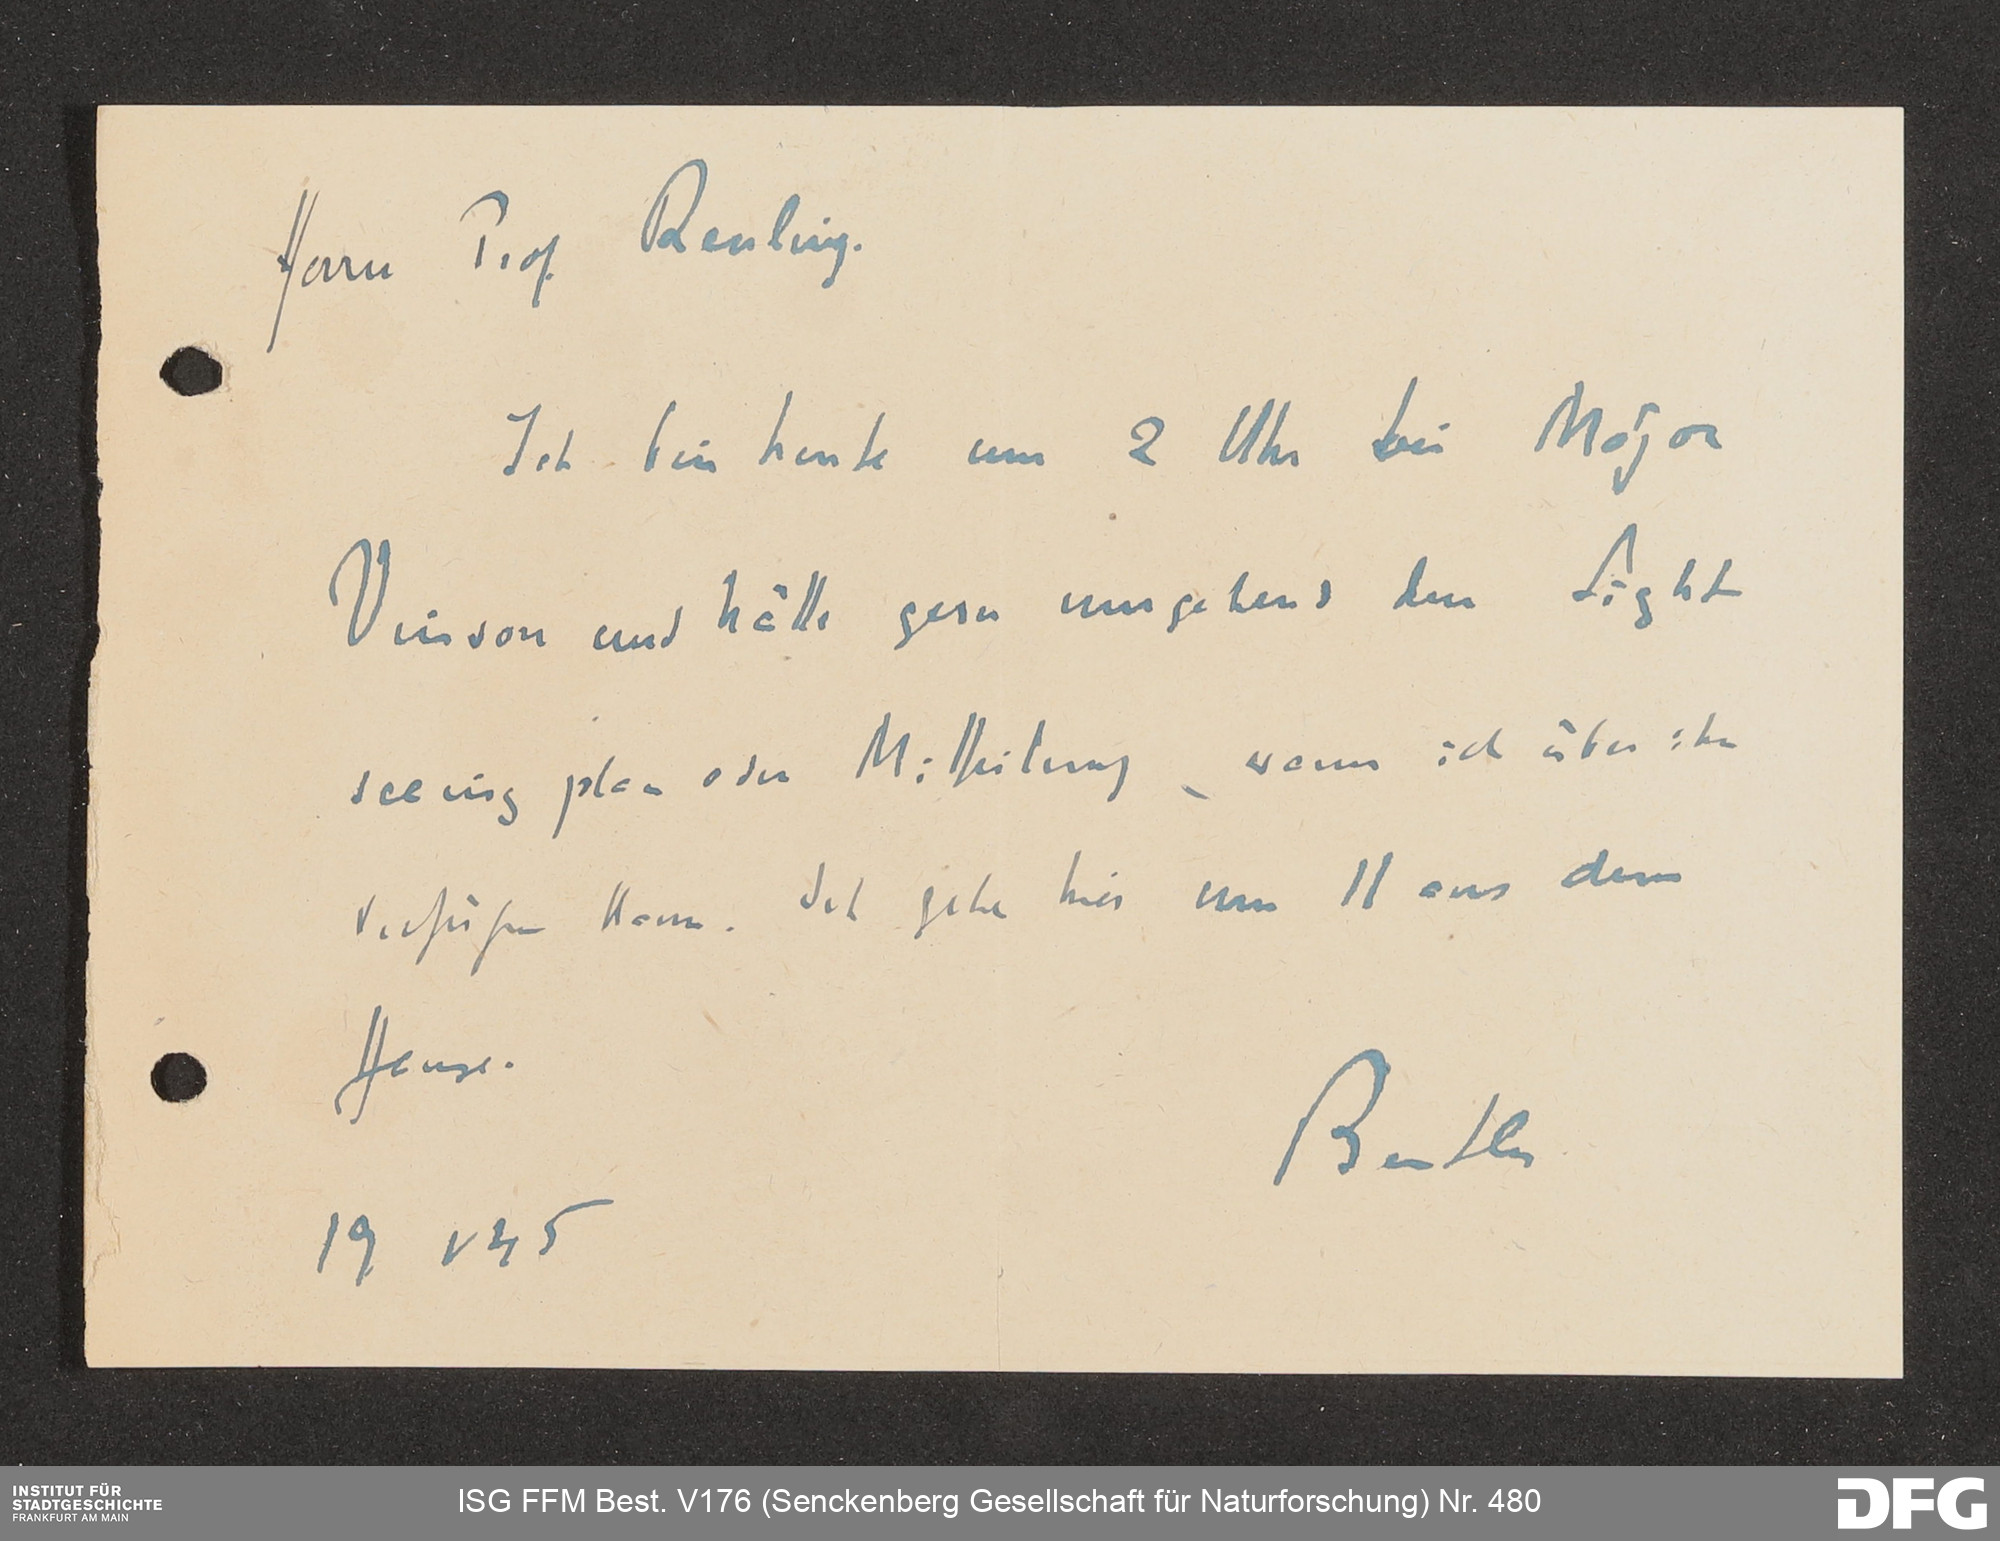 Herrn Prof. Reuling.
Ich bin heute um 2 Uhr bei Major
Vinson und hätte gern umgehend den Sight
seeing plan oder Mitteilung, wann ich über ihn
verfügen kann. Ich gehe hier um 11 aus dem
Hause.
Beutler
19 V 45
INSTITUT FÜR
STADTGESCHICHTE
FRANKFURT AM MAIN
ISG FFM Best. V176 (Senckenberg Gesellschaft für Naturforschung) Nr. 480
DFG